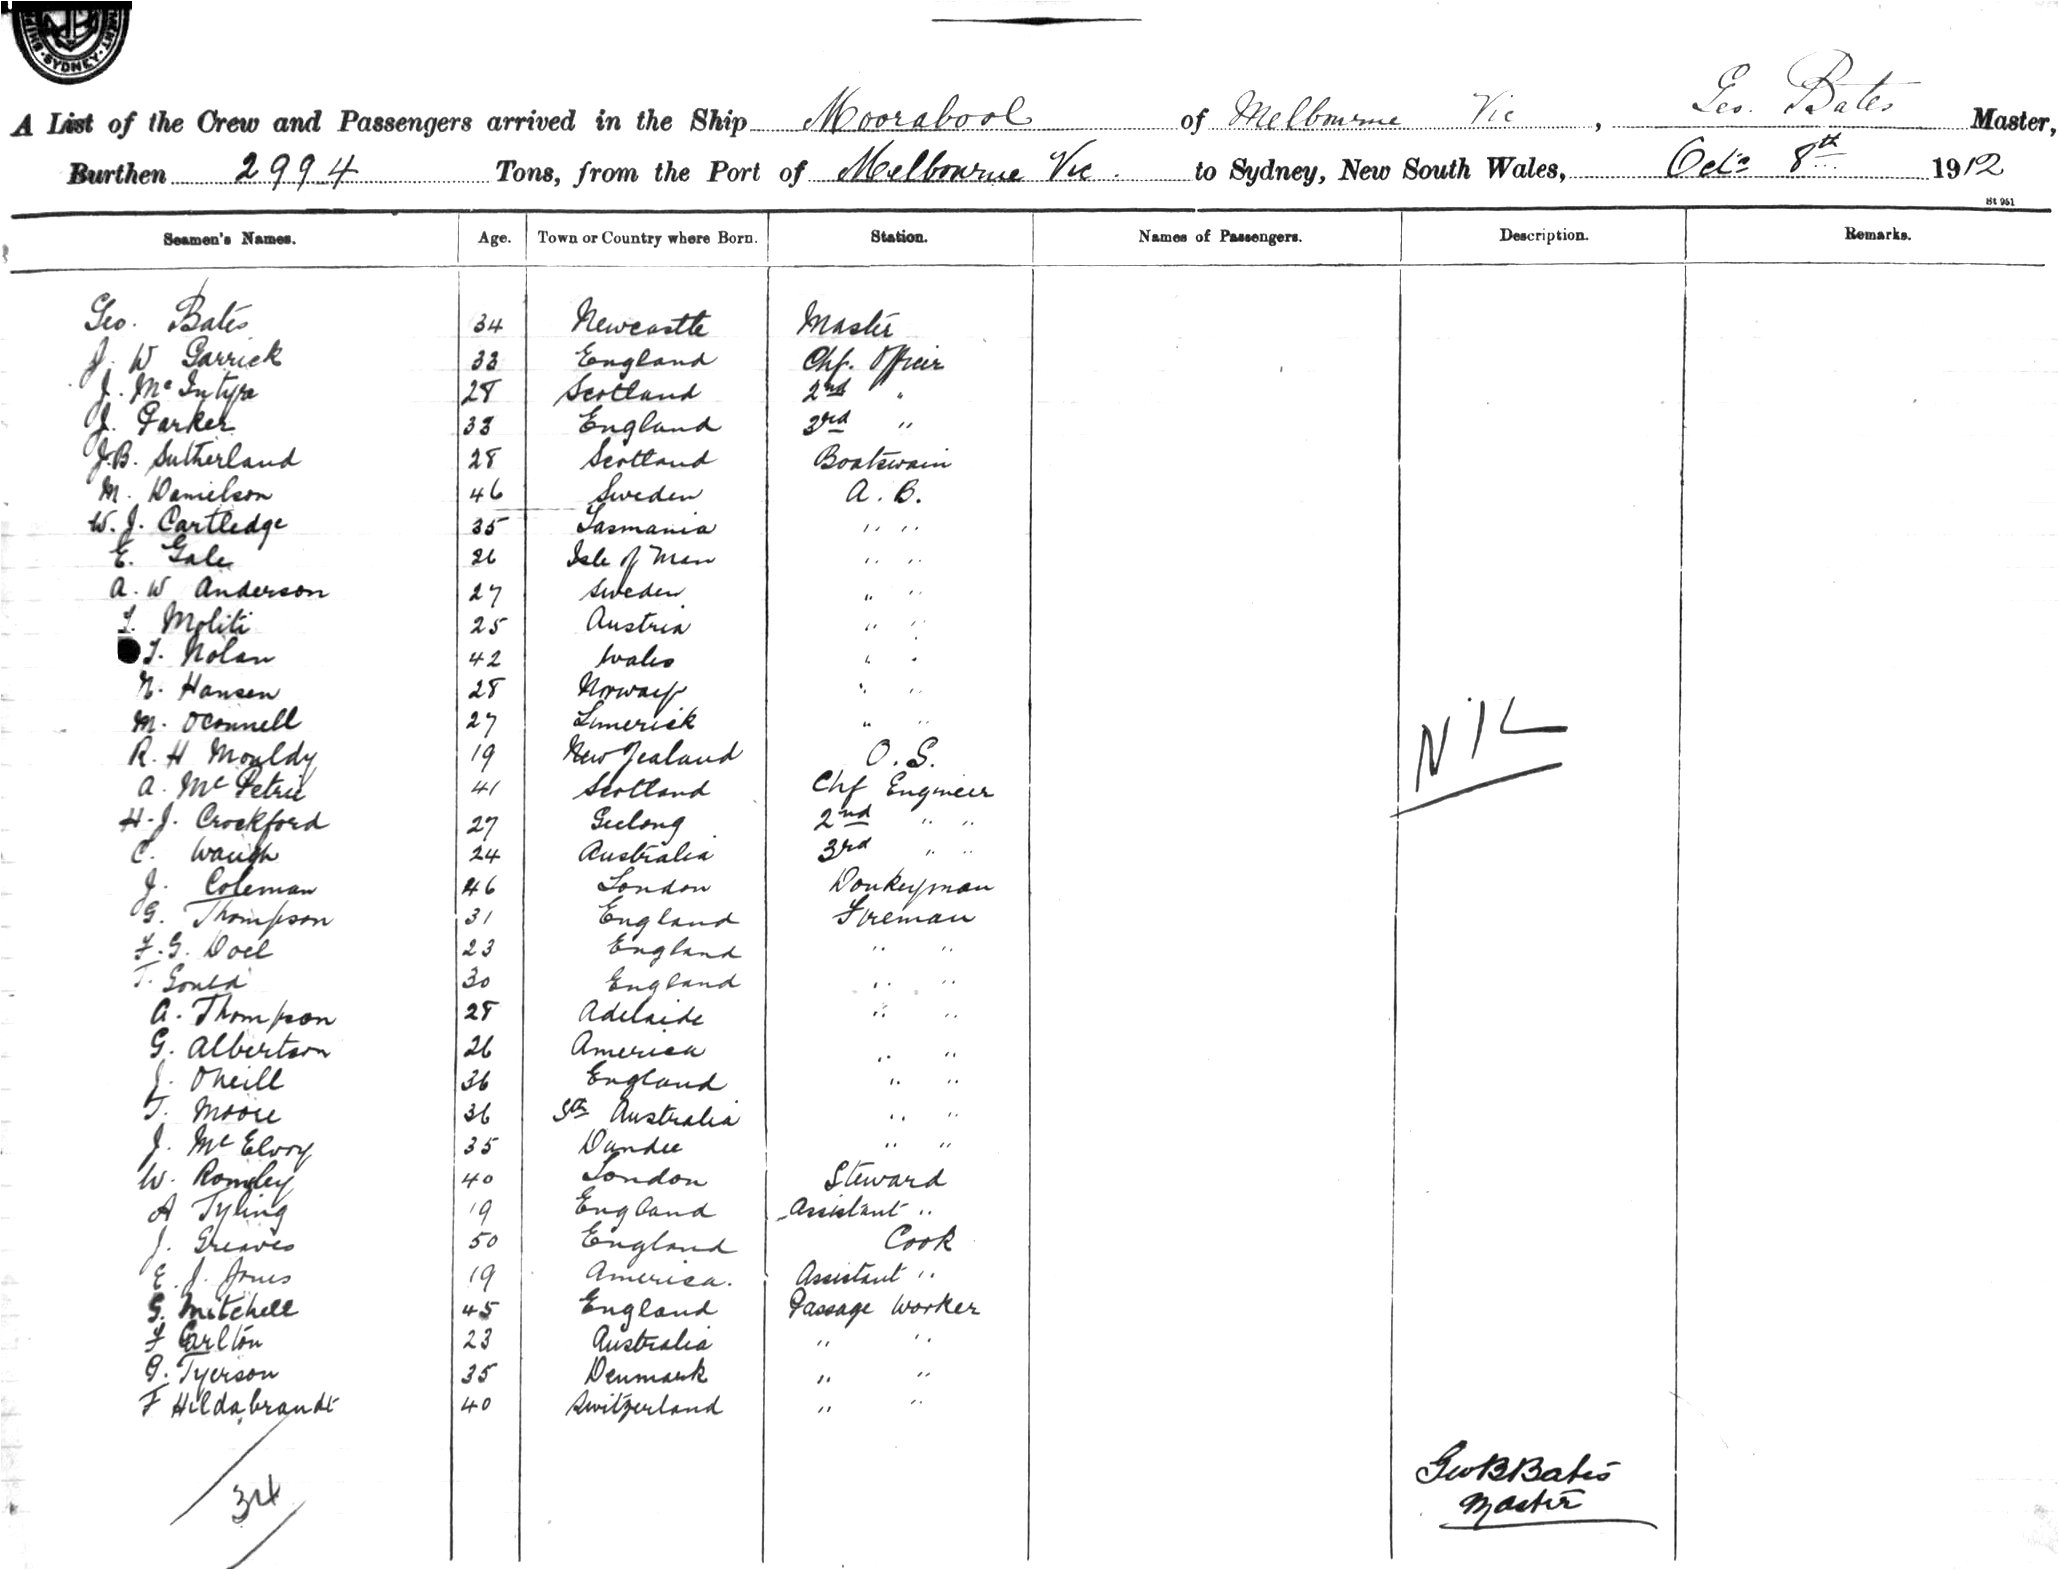 SYDNEY
A List of the Crew and Passengers arrived in the Ship Moorabool of Melbourne Vic, Geo. Bates Master,
Burthen 2994 Tons, from the Port of Melbourne Vic. to Sydney, New South Wales, Octr 8th 1912
St 951
Seamen's Names. Age. Town or Country where Born. Station. Names of Passengers. Description. Remarks.
Geo. Bates 34 Newcastle Master
J. W Garrick 33 England Chf. Officer
J. McIntyre 28 Scotland 2nd "
J. Parker 33 England 3rd "
J.B. Sutherland 28 Scotland Boatswain
M. Danielson 46 Sweden A. B.
W. J. Cartledge 35 Tasmania " "
E. Gale 26 Isle of Man " "
A. W Anderson 27 Sweden " "
T. Moliti 25 Austria " "
T. Nolan 42 Wales " "
N. Hansen 28 Norway " "
M. OConnell 27 Limerick " "
R. H Mouldy 19 New Zealand O. S.
A. McPetrie 41 Scotland Chf Engineer
H. J. Crockford 27 Geelong 2nd " "
C. Waugh 24 Australia 3rd " "
J. Coleman 46 London Donkeyman
G. Thompson 31 England Fireman
F. G. Doel 23 England " "
T. Gould 30 England " "
A. Thompson 28 Adelaide " "
G. Albertson 26 America " "
J. ONeill 36 England " "
T. Moore 36 Sth Australia " "
J. McElvoy 35 Dundee " "
W. Romley 40 London Steward
A Tyling 19 England Assistant "
J. Greaves 50 England Cook
E. J. Jones 19 America. Assistant "
G. Mitchell 45 England Passage Worker
F Carlton 23 Australia " "
G. Tyerson 35 Denmark " "
F Hildabrandt 40 Switzerland " "
NIL
34
Geo B Bates
Master